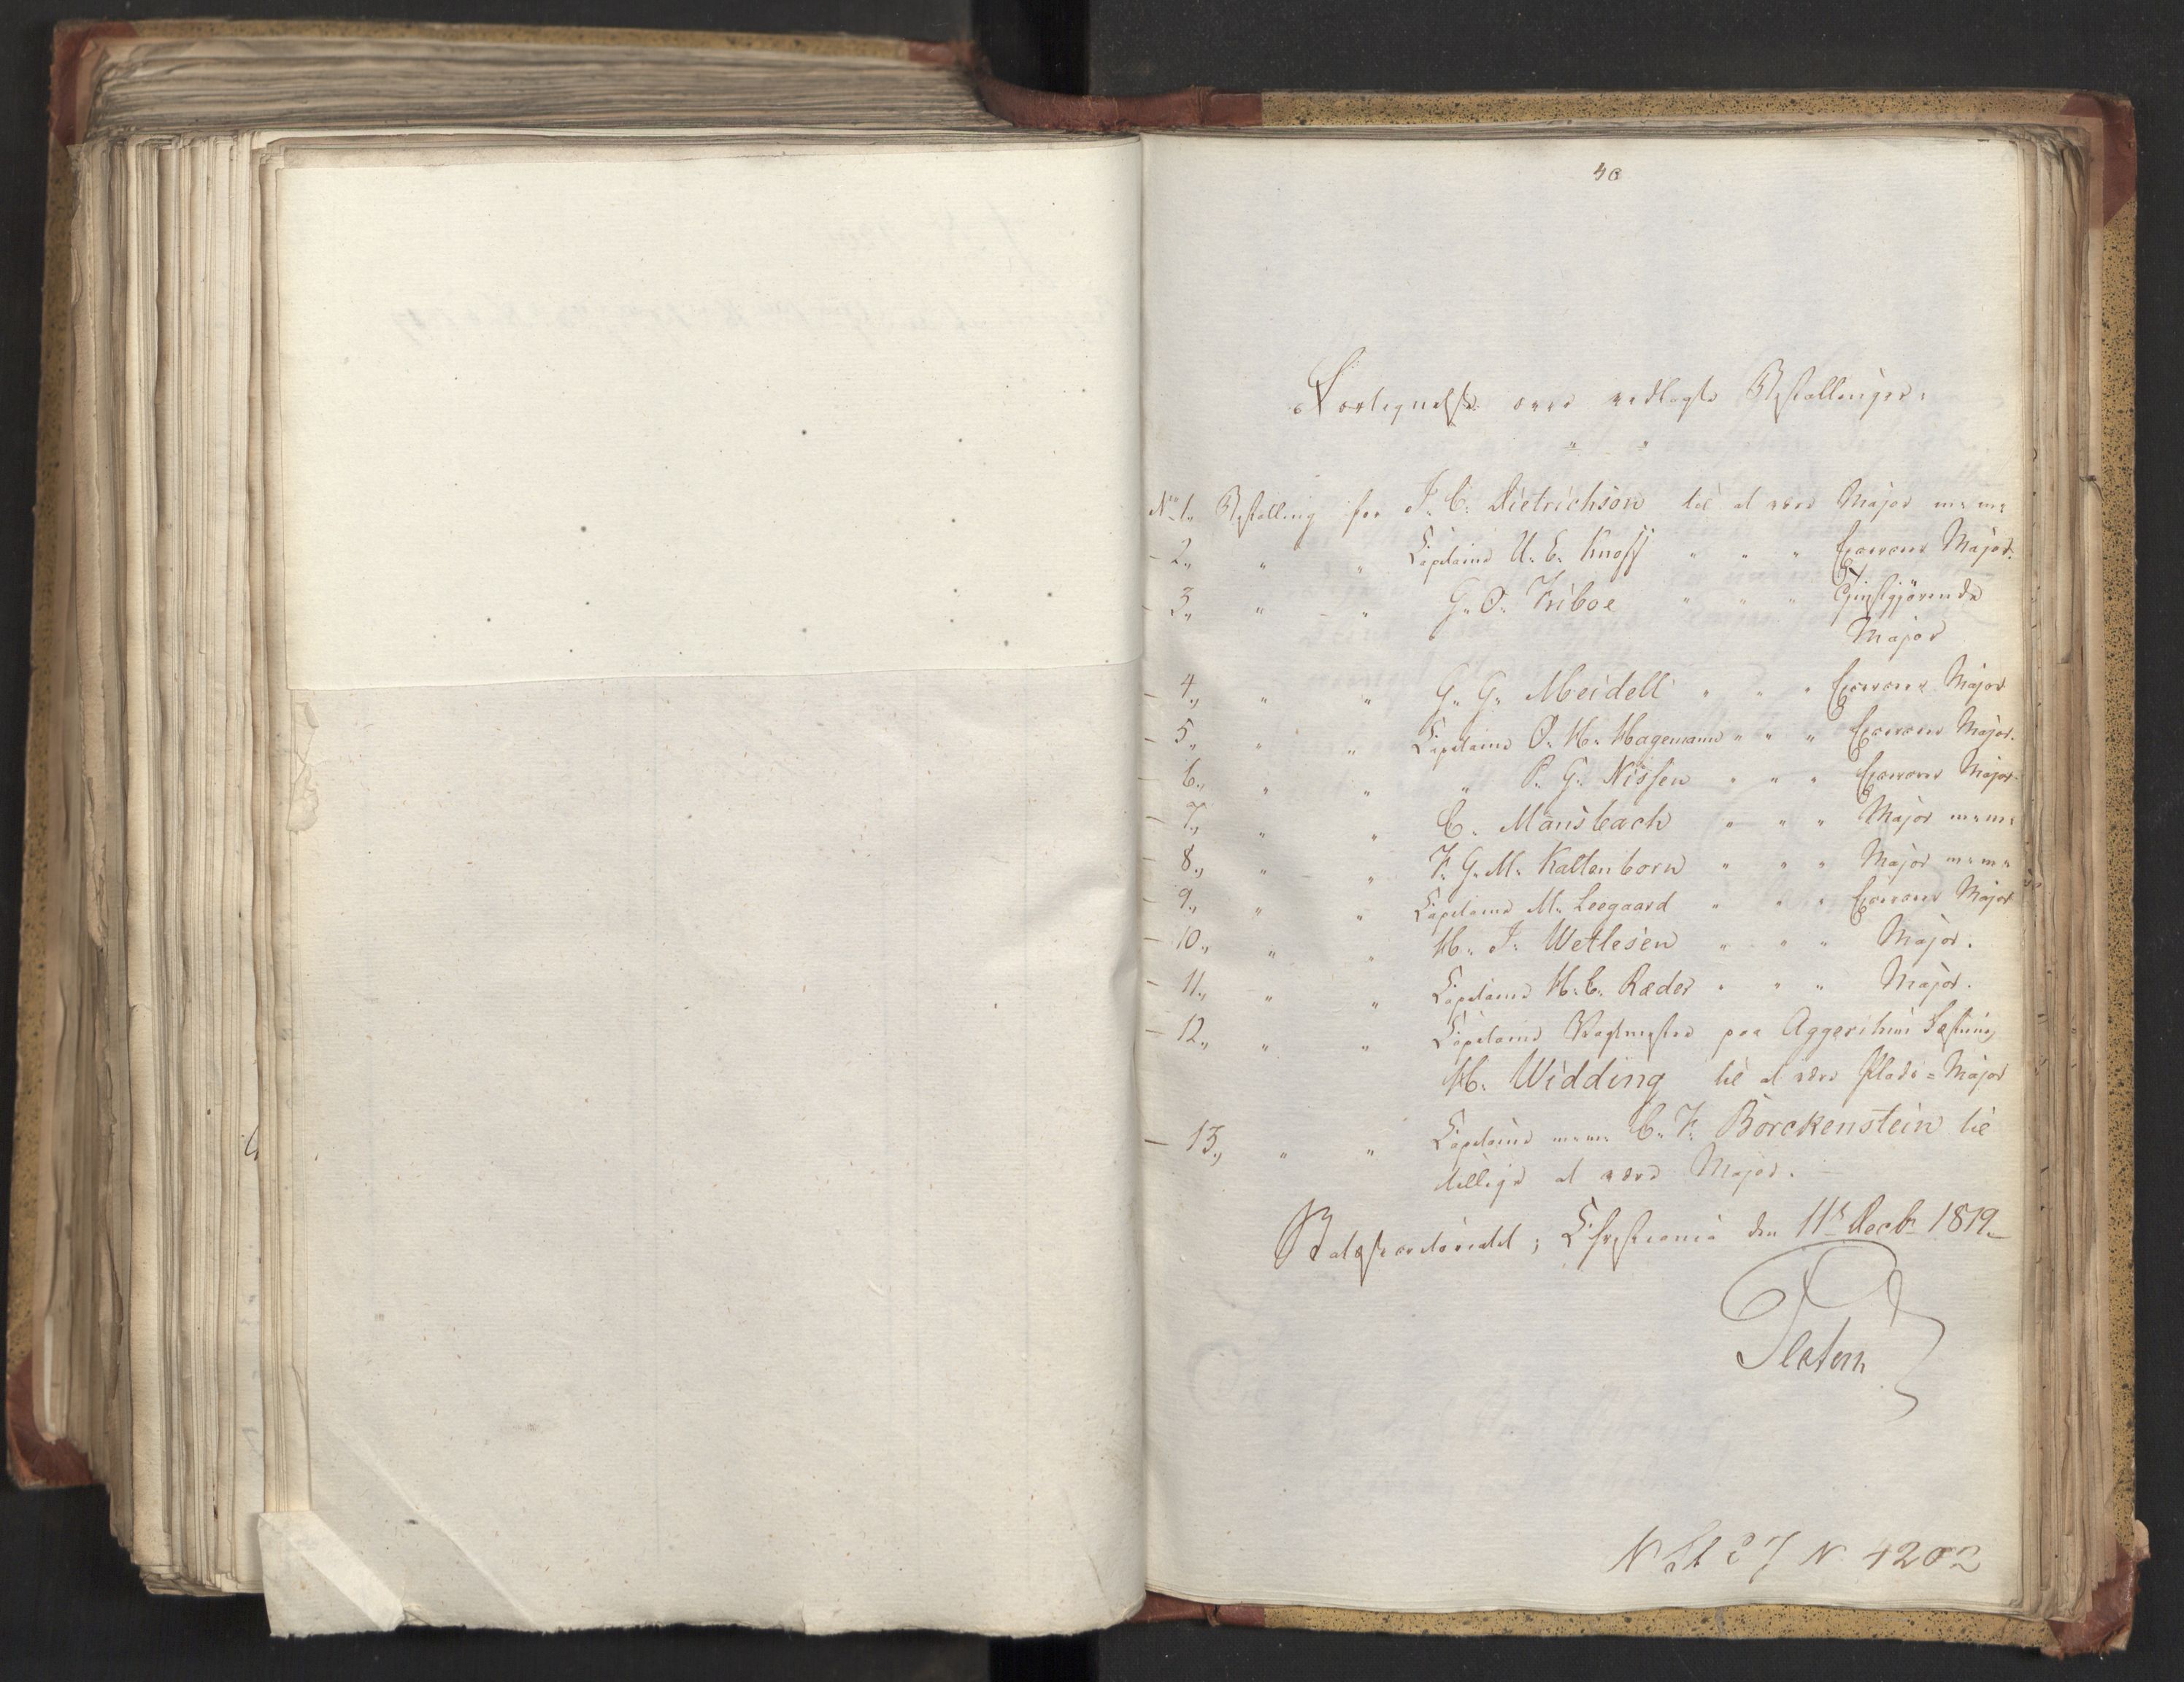 40
Fortegnelse over vedlagte Bestallinger.
" "
No 1., Bestalling for J. C. Dietrichson til at være Major m: m:
- 2., " " Capitaine U. E. Knoff " " " Caract. Major.
- 3., " " G. O. Friboe " " " Tjenstgjørende
Major
- 4., " " G. G. Meidell " " " Caract. Major
- 5., " " Capitaine O. H. Hagemann " " " Caract. Major.
- 6., " " " P. G. Nissen " " " Caract. Major.
- 7., " " C. Mansbach " " " Major m: m:
- 8., " " F. G. M. Kaltenborn " " " Major m: m:
- 9., " " Capitaine M. Leegaard " " " Caract. Major
- 10., " " H. J. Wetlesen " " " Major.
- 11., " " Capitaine H. C. Ræder " " " Major.
- 12., " " Capitaine Vagtmester paa Aggershuus Fæstning
H. Widding til at være Plads=Major
- 13., " " Capitaine m: m: C. F. Borckenstein til
tillige at være Major.
Christiania den 11te Decb. 1819.
Platou
N 4202